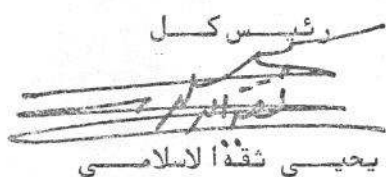 رئیس کل
یحیی ثقةالاسلامی